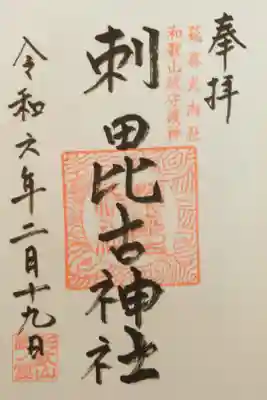 奉拝
延喜式内社
和歌山城守護神
刺田比古神社
令和六年二月十九日